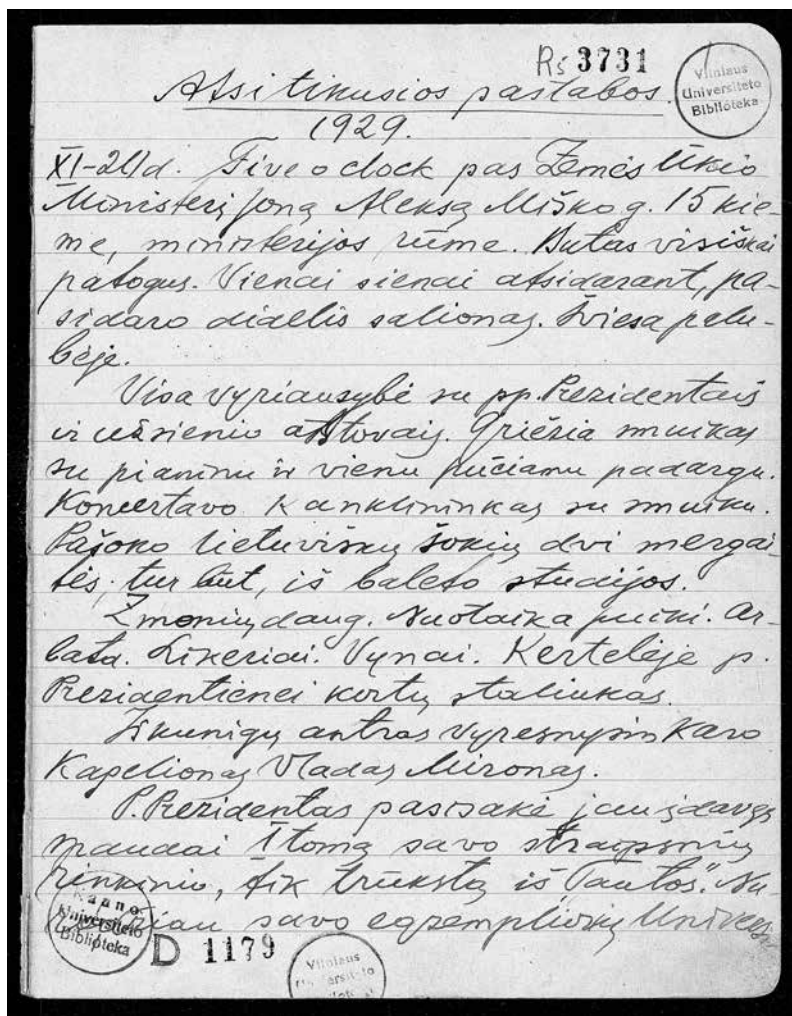 Rś 3731
Vilniaus
Universiteto
Biblioteka
Atsitikusios pastabos.
1929.
XI-20 d. Five o clock pas Žemės Ūkio
Ministerį Joną Aleksą Miško g. 15 kie-
me, ministerijos rūme. Butas visiškai
patogus. Vienai sienai atsidarant, pa-
sidaro didelis salionas. Šviesa pelu-
bėje.
Visa vyriausybė su pp. Prezidentais
ir užsienio atstovais. Griežia smuikas
su pianinu ir vienu pučiamu padargu.
Koncertavo Kanklininkas su smuiku.
Pašoko lietuviškų šokių dvi mergai-
tės, tur būt, iš baleto studijos.
Žmonių daug. Nuotaika puiki. Ar-
bata. Likeriai. Vynai. Kertelėje p.
Prezidentienei kortų staliukas.
Iš kunigų antras vyresnysis Karo
Kapelionas Vladas Mironas.
P. Prezidentas pasisakė jau įdavęs
spaudai I tomą savo straipsnių
rinkinio, tik trūkstą iš "Tautos". Nu-
savo egzempliorių Univers
Kauno
Universiteto
Biblioteka
D 1179
Vilniaus